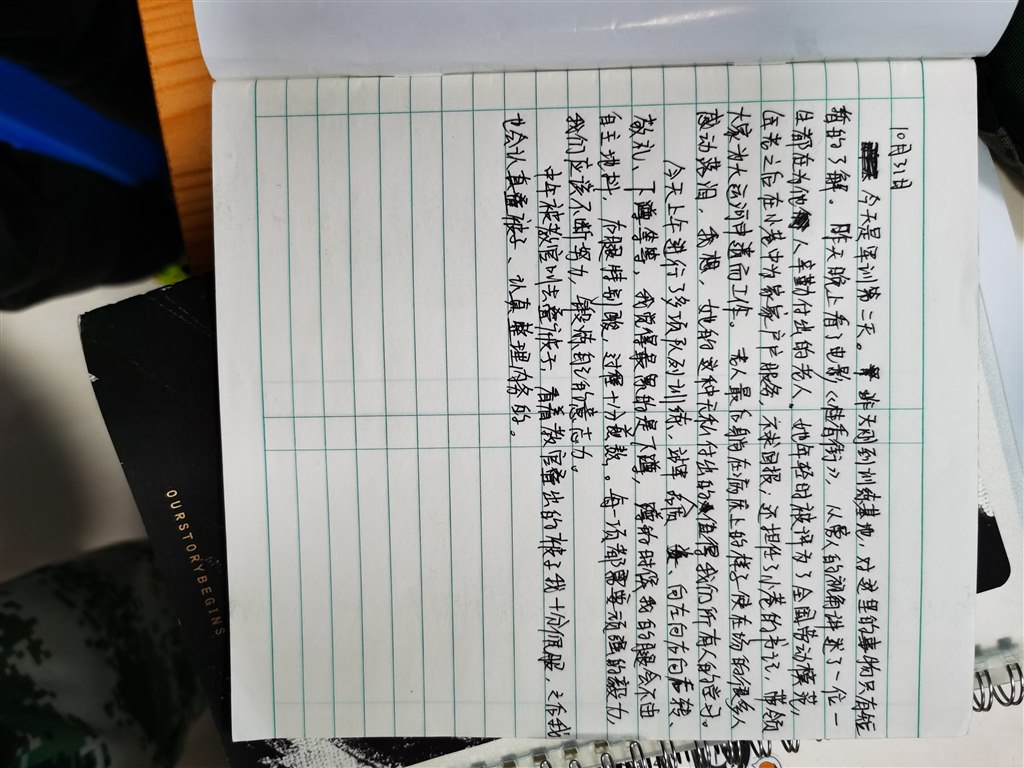 10月31日
今天是军训第二天。昨天刚到训练基地，对这里的事物只有短
暂的了解。昨天晚上看了电影《桂香街》，从爱人的视角讲述了一位一
旦都在为他人辛勤付出的老人。她年轻时被评为了全国劳动模范，
在老之后在小巷中为家家户户服务，不求回报，还担任了小巷的书记，带领
大家为大运河申遗而工作。老人最后躺在病床上的样子使在场的很多人
感动落泪，我想，她的这种无私付出的值得我们所有人的学习。
今天上午进行了多项队列训练，站军姿、向左向右向后转、
敬礼、下蹲等等，我觉得最累的是下蹲，蹲的时候我的腿会不由
自主地抖，右腿特别酸，过程十分煎熬。每一项都需要顽强的毅力，
我们应该不断努力，锻炼自己的意志力。
中午被教官叫去叠被子，看着教官叠出的被子我十分佩服，之后我
也会认真叠被子、认真整理内务的。
OURSTORYBEGINS